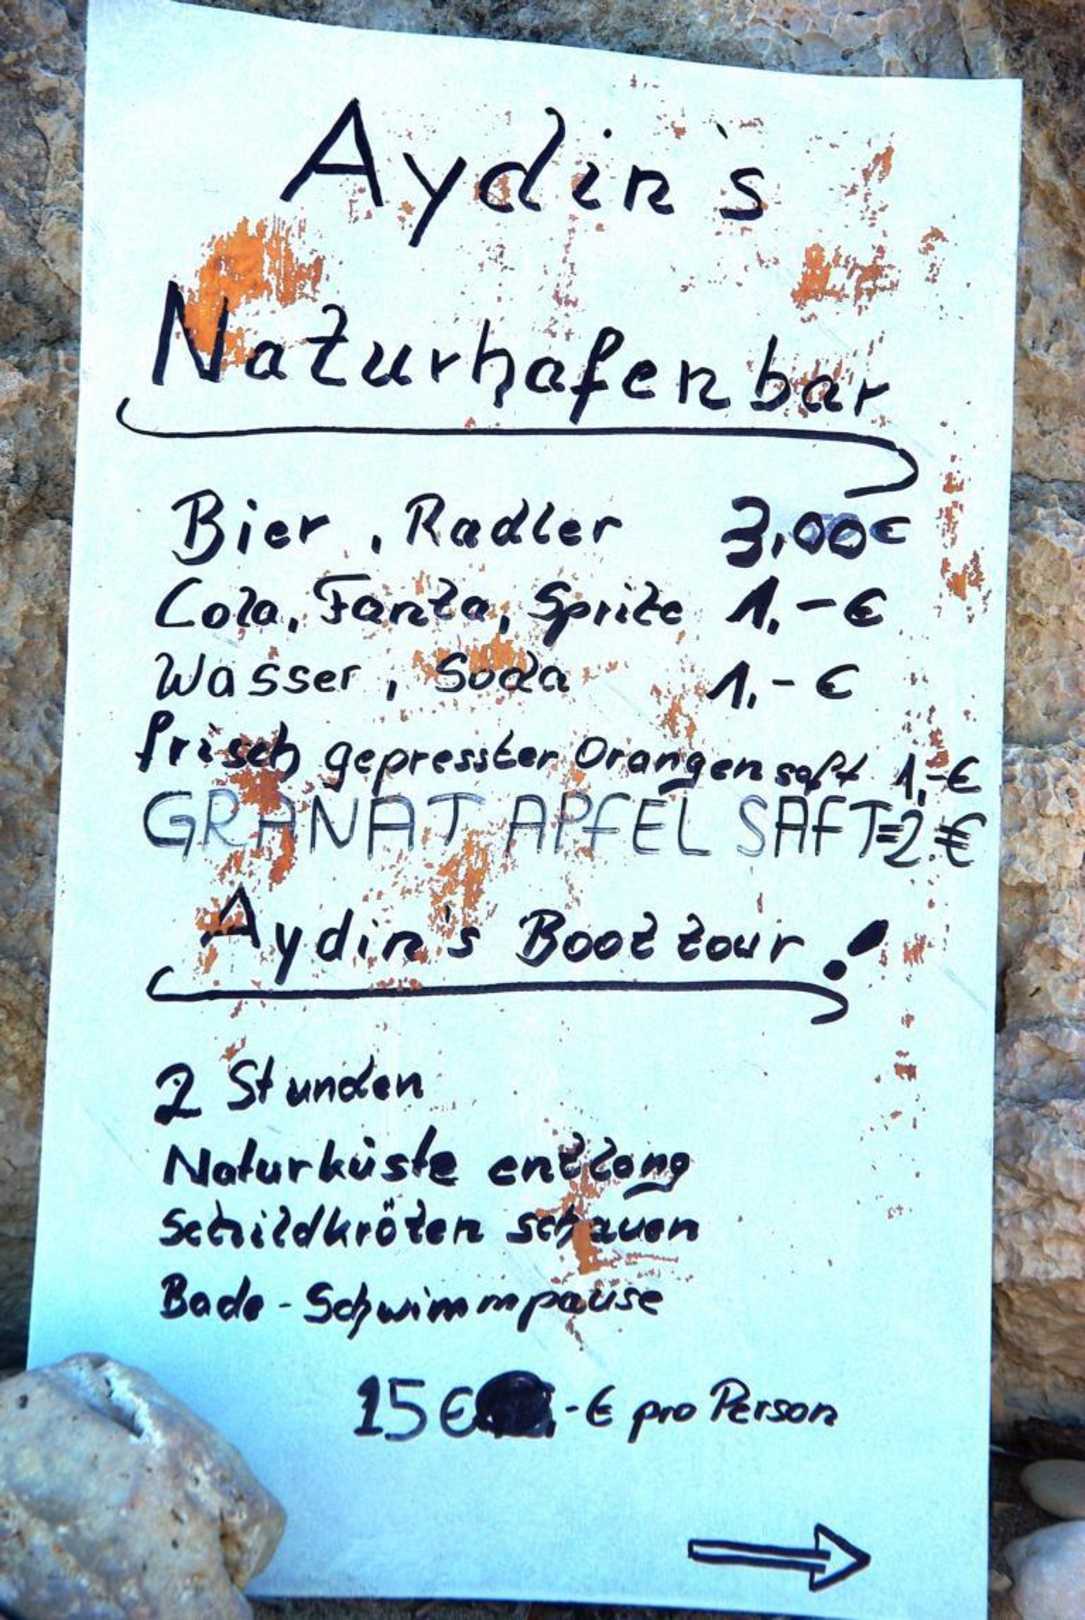 Aydin's
Naturhafenbar
Bier, Radler 3,00€
Cola, Fanta, Sprite 1,-€
Wasser, Soda 1,-€
frisch gepresster Orangensaft 1,-€
GRANAT APFEL SAFT=2.€
Aydin's Boottour!
2 Stunden
Naturküste entlang
Schildkröten schauen
Bade-Schwimmpause
15€ .-€ pro Person